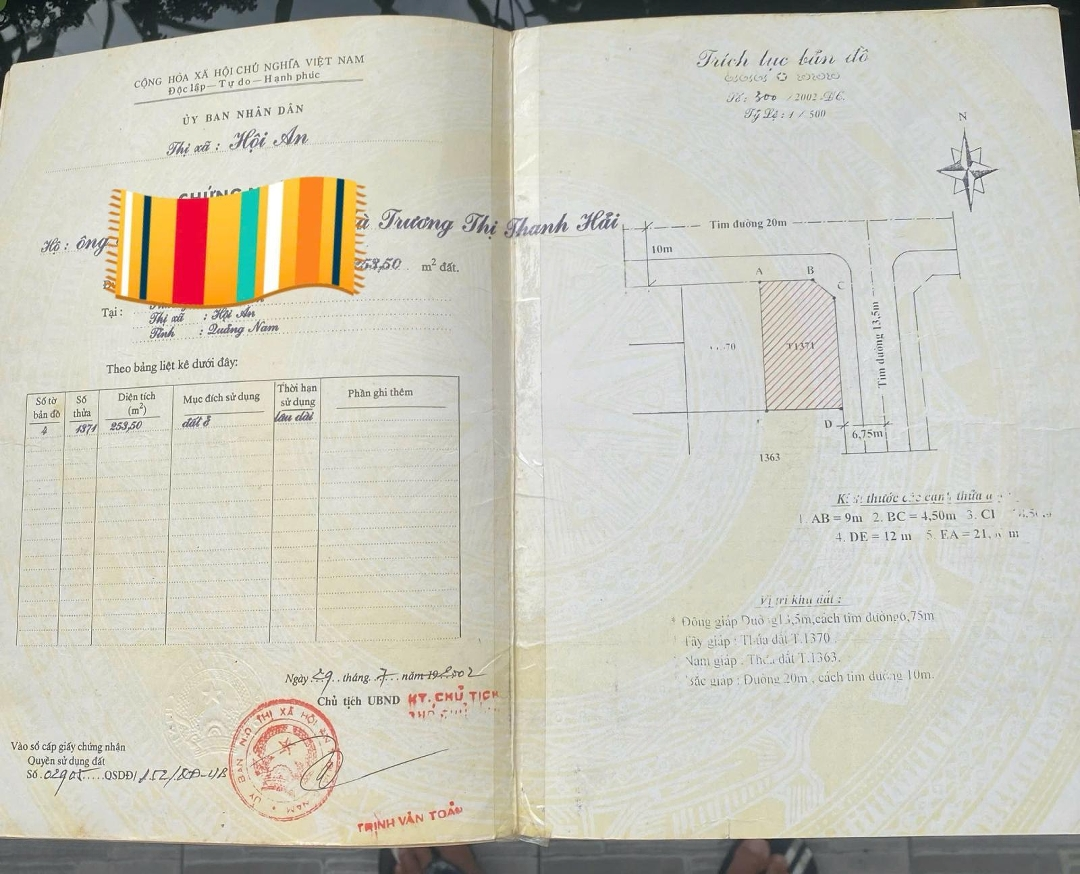 CỘNG HÒA XÃ HỘI CHỦ NGHĨA VIỆT NAM
Độc lập — Tự do — Hạnh phúc
ỦY BAN NHÂN DÂN
Thị xã : Hội An
Hộ : ông
Trương Thị Thanh Hải
253,50 m² đất.
Tại :
Thị xã : Hội An
Tỉnh : Quảng Nam
Theo bảng liệt kê dưới đây:
Số tờ bản đồ
Số thửa
Diện tích (m²)
Mục đích sử dụng
Thời hạn sử dụng
Phần ghi thêm
4 1371 253,50 đất ở lâu dài
Ngày 29 tháng 7 năm 2002
Chủ tịch UBND KT. CHỦ TỊCH
TRỊNH VĂN TOẢN
Vào sổ cấp giấy chứng nhận
Quyền sử dụng đất
Số 02905 QSDĐ/
Trích lục bản đồ
Số : 300 / 2002 ĐC.
Tỷ Lệ : 1 / 500
N
Tim đường 20m
10m
A B
C
T1371
Tim đường 13,5m
D
6,75m
1363
thước các cạnh thửa
1. AB = 9m 2. BC = 4,50m 3.
4. DE = 12 m 5. EA = 21,
Vị trí khu đất :
* Đông giáp 13,5m,cách tim đường6,75m
Tây giáp : Thửa đất T.1370
Nam giáp : Thửa đất T.1363.
Bắc giáp : Đường 20m , cách tim đường 10m.